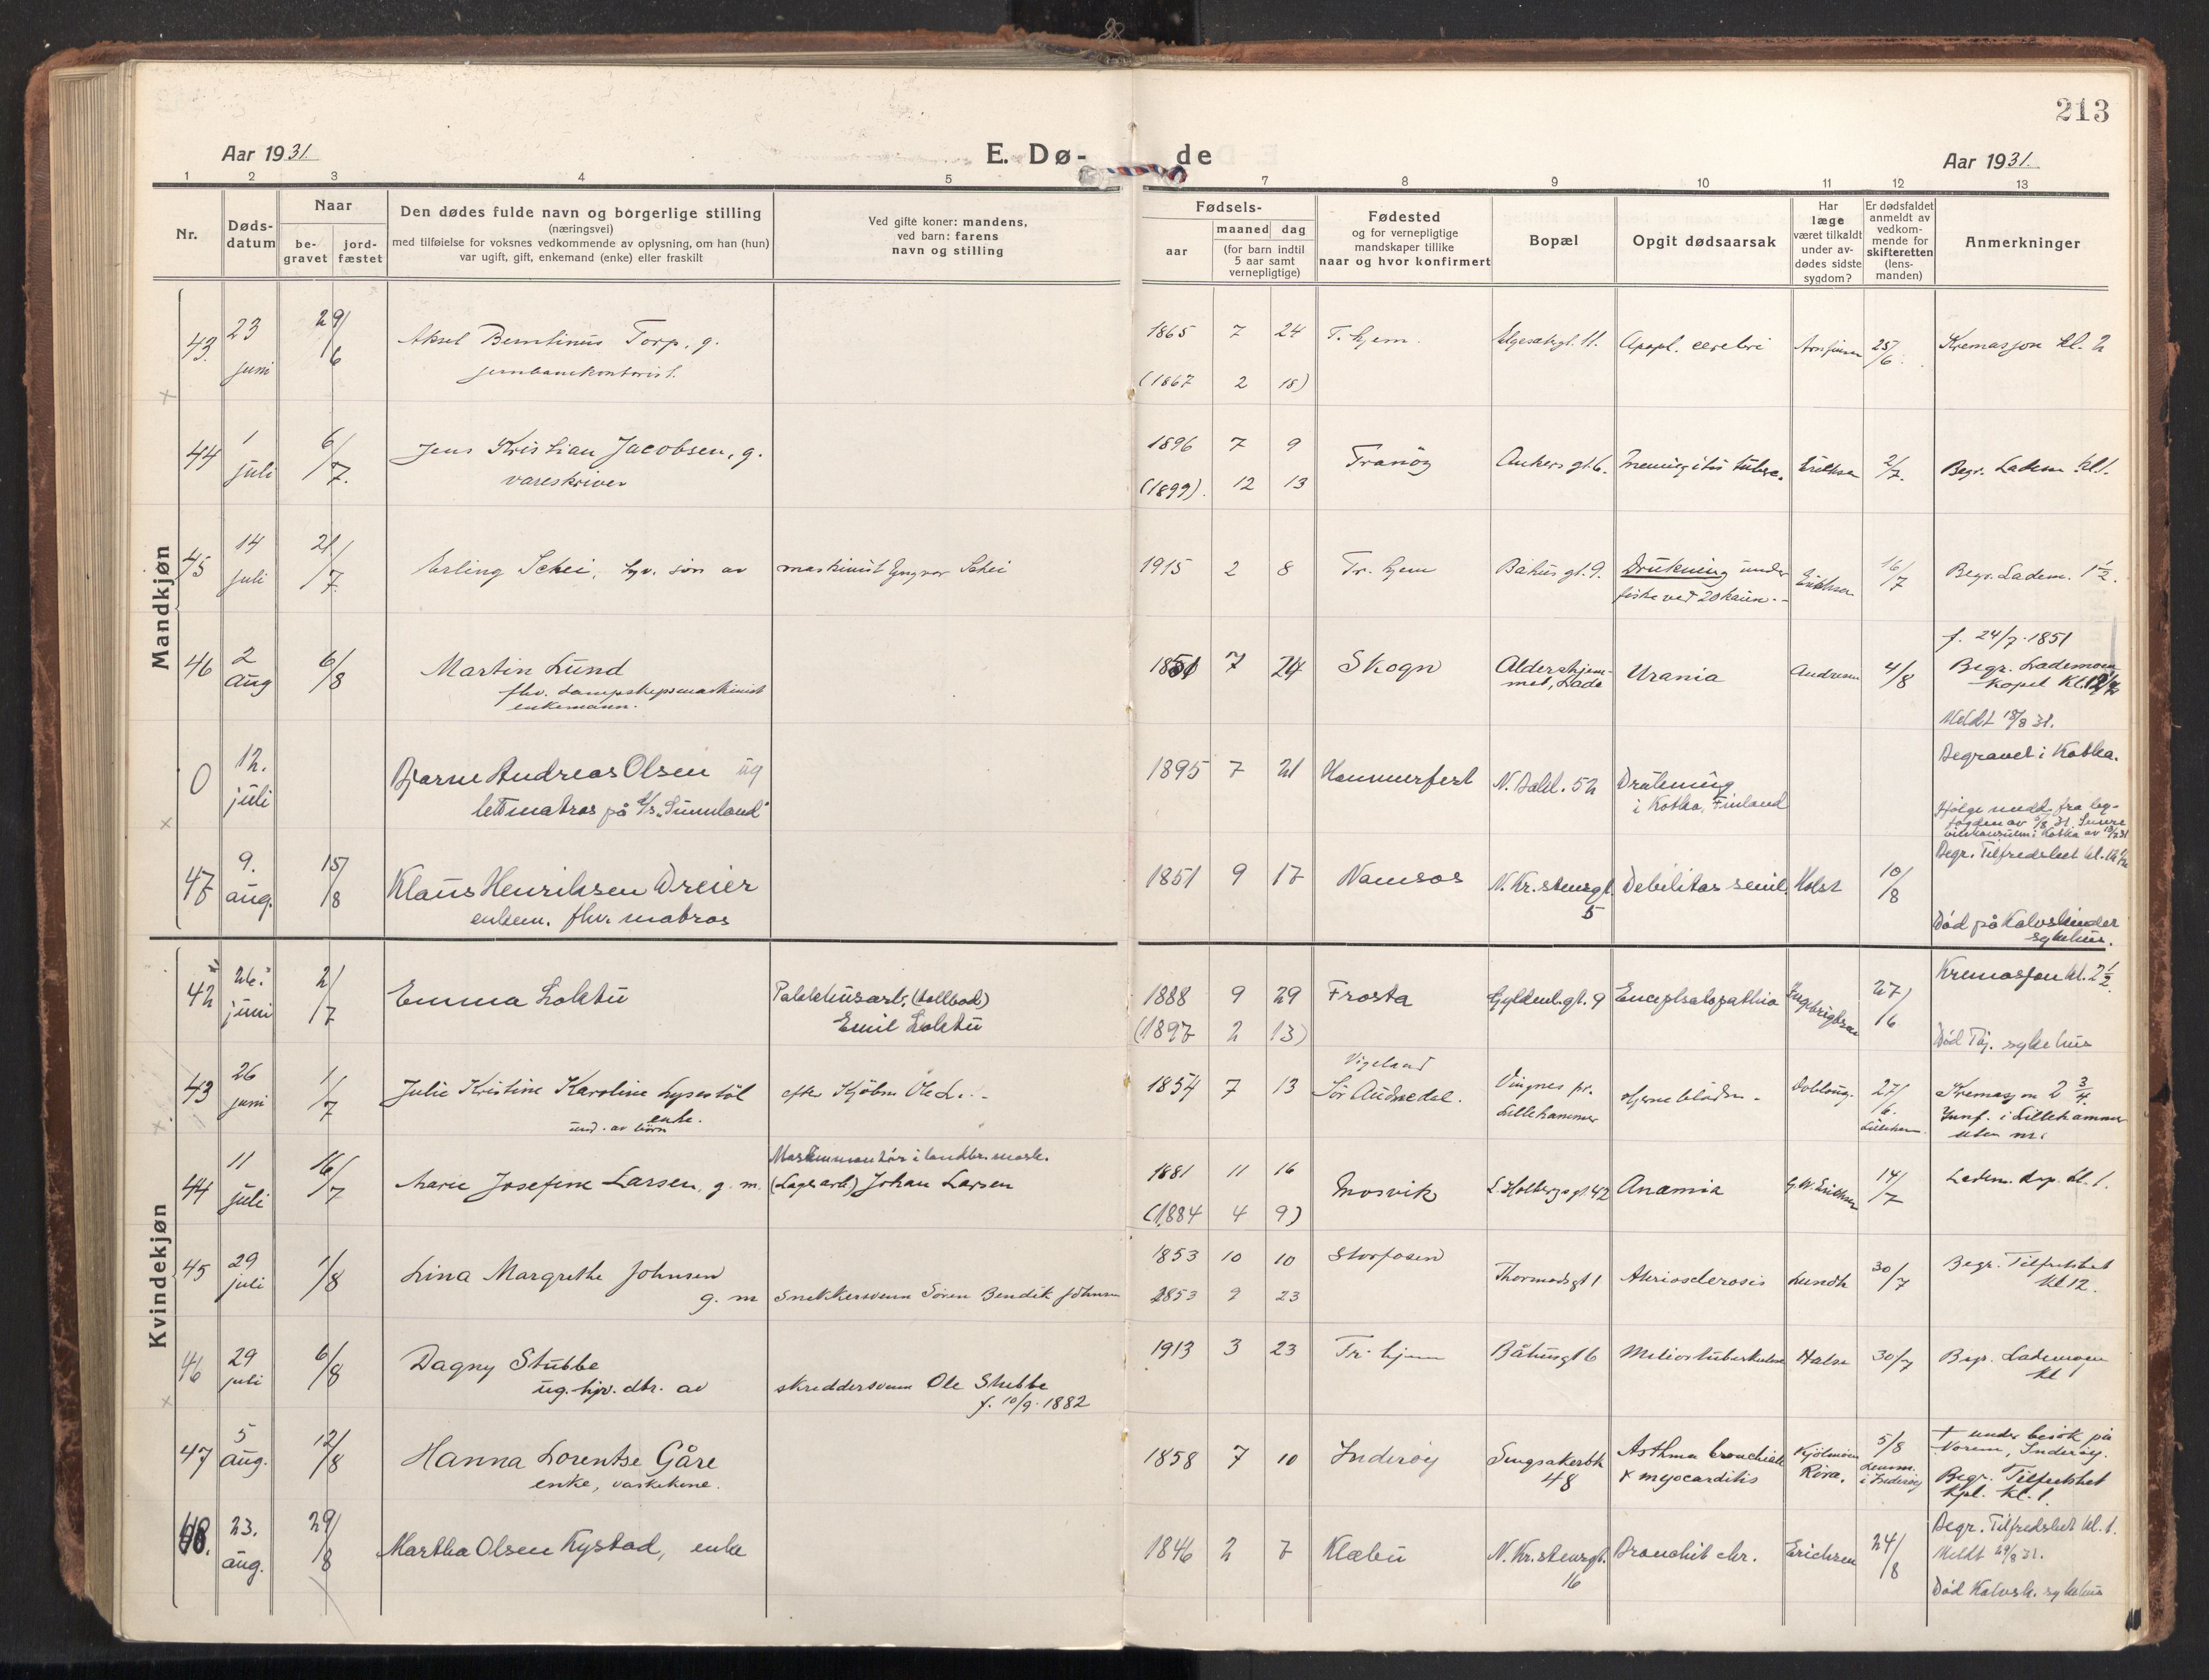 213
Aar 1931.
E. Dø-
de
Aar 1931.
1 2 3 4 5
7 8 9 10 11 12 13
Nr.
Døds-
datum
Naar
be-
gravet
jord-
fæstet
Den dødes fulde navn og borgerlige stilling
(næringsvei)
med tilføielse for voksnes vedkommende av oplysning, om han (hun)
var ugift, gift, enkemand (enke) eller fraskilt
Ved gifte koner: mandens,
ved barn: farens
navn og stilling
Fødsels-
aar
maaned dag
(for barn indtil
5 aar samt
vernepligtige)
Fødested
og for vernepligtige
mandskaper tillike
naar og hvor konfirmert
Bopæl
Opgit dødsaarsak
Har
læge
været tilkaldt
under av-
dødes sidste
sygdom?
Er dødsfaldet
anmeldt av
vedkom-
mende for
skifteretten
(lens-
manden)
Anmerkninger
Mandkjøn
43. 23 juni 29/6 Aksel Berntinus Torp, g. 1865 7 24 T. hjem. Elgesetrgt. 11. Apopl. cerebri 25/6. Kremasjon kl. 2
jernbanekontorist. (1867 2 18)
44 1 juli 6/7. Jens Kristian Jacobsen, g. 1896 7 9 Tranöy Ankers gt. 6. Meningitis tuberc. Erichsen 2/7. Begr. Ladem. kl. 1.
vareskriver (1899). 12 13
45 14 juli 21/7. Erling Schei, hjv. sön av maskinist Yngvar Schei 1915 2 8 Tr. hjem Båhus gt. 9. Drukning under Erichsen 16/7 Begr. Ladem. 1½.
fiske ved
46 2 aug 6/8 Martin Lund 1851 7 24 Skogn Aldershjem- Urania Andresen 4/8 f. 24/7 1851
fhv. dampskipsmaskinist met, Lade Begr. Lademoen
enkemann. kapel kl.
Meldt 18/8 31.
0 12. juli Bjarne Andreas Olsen ug 1895 7 21 Hammerfest N. Bakl. 52 Drukning Begravet i Kotka.
lettmatros på s/s. "Sunnland" i Kotka, Finland Ifölge medd. fra
47 9. aug. 15/8 Klaus Henriksen Dreier 1851 9 17 Namsos N. Kr. stensgt. Debilitas senil. Holst 10/8 Begr. Tilfredshet kl.
enkem. fhv. matros 5
Död på Kalvskindet
sykehus.
Kvindekjøn
42 26. juni 2/7 Emma Loktu Pakkhusarb. (tollbod) 1888 9 29 Frosta Gyldenl. gt. 9 Encephalopathia Ingebrigtsen 27/6 Kremasjon kl. 2½.
Emil Loktu (1897 2 13) Död Tr.hj. sykehus
43 26 juni 1/7 Julie Kristine Karoline Lysestöl efter Kjöbm Ole L. 1854 7 13 Vigeland
enke. Sör Audnedal. Vingnes pr. Hjerneblödn. 27/6. Kremasjon 2¾.
und. av börn Lillehammer Lilleham. Jnnf. i Lillehammer
uten nr.
44 11 juli 16/7 Marie Josefine Larsen, g. m. Maskinmontör i landbr. mask. 1881 11 16 Mosvik L. Holbergs gt. 42 Anæmia G. W. Erichsen 14/7 Ladem. kap. kl. 1.
(Lagerarb) Johan Larsen (1884 4 9)
45 29 juli 1/8 Lina Margrethe Johnsen 1853 10 10 Storfosen Thormodsgt 1 Lundh 30/7 Begr. Tilfredshet
g. m snekkersvenn Sören Bendik Johnsen 1853 9 23 kl 12.
46 29 juli 6/8 Dagny Stubbe 1913 3 23 Tr. hjem Båhusgt 6 Miliærtuberkulose Halse 30/7 Begr. Lademoen
ug. hjv. dtr. av skreddersvenn Ole Stubbe kl
f. 10/9 1882
47 5 aug. 12/8 Hanna Lorentse Gåre 1858 7 10 Inderöy Singsakerbk Asthma bronchiale 5/8 † under besök på
enke, vaskekone. 48 & myocarditis Lensm. Norem, Inderöy.
i Inderöy Begr. Tilfredshet
kpl. kl. 1.
48. 23. aug. 29/8 Martha Olsen Kystad, enke 1846 2 7 Klæbu N. Kr. stensgt. Bronchit chr. Erichsen 24/8 Begr. Tilfredshet kl. 1.
16 Meldt 29/8 31.
Död Kalvsk. sykehus